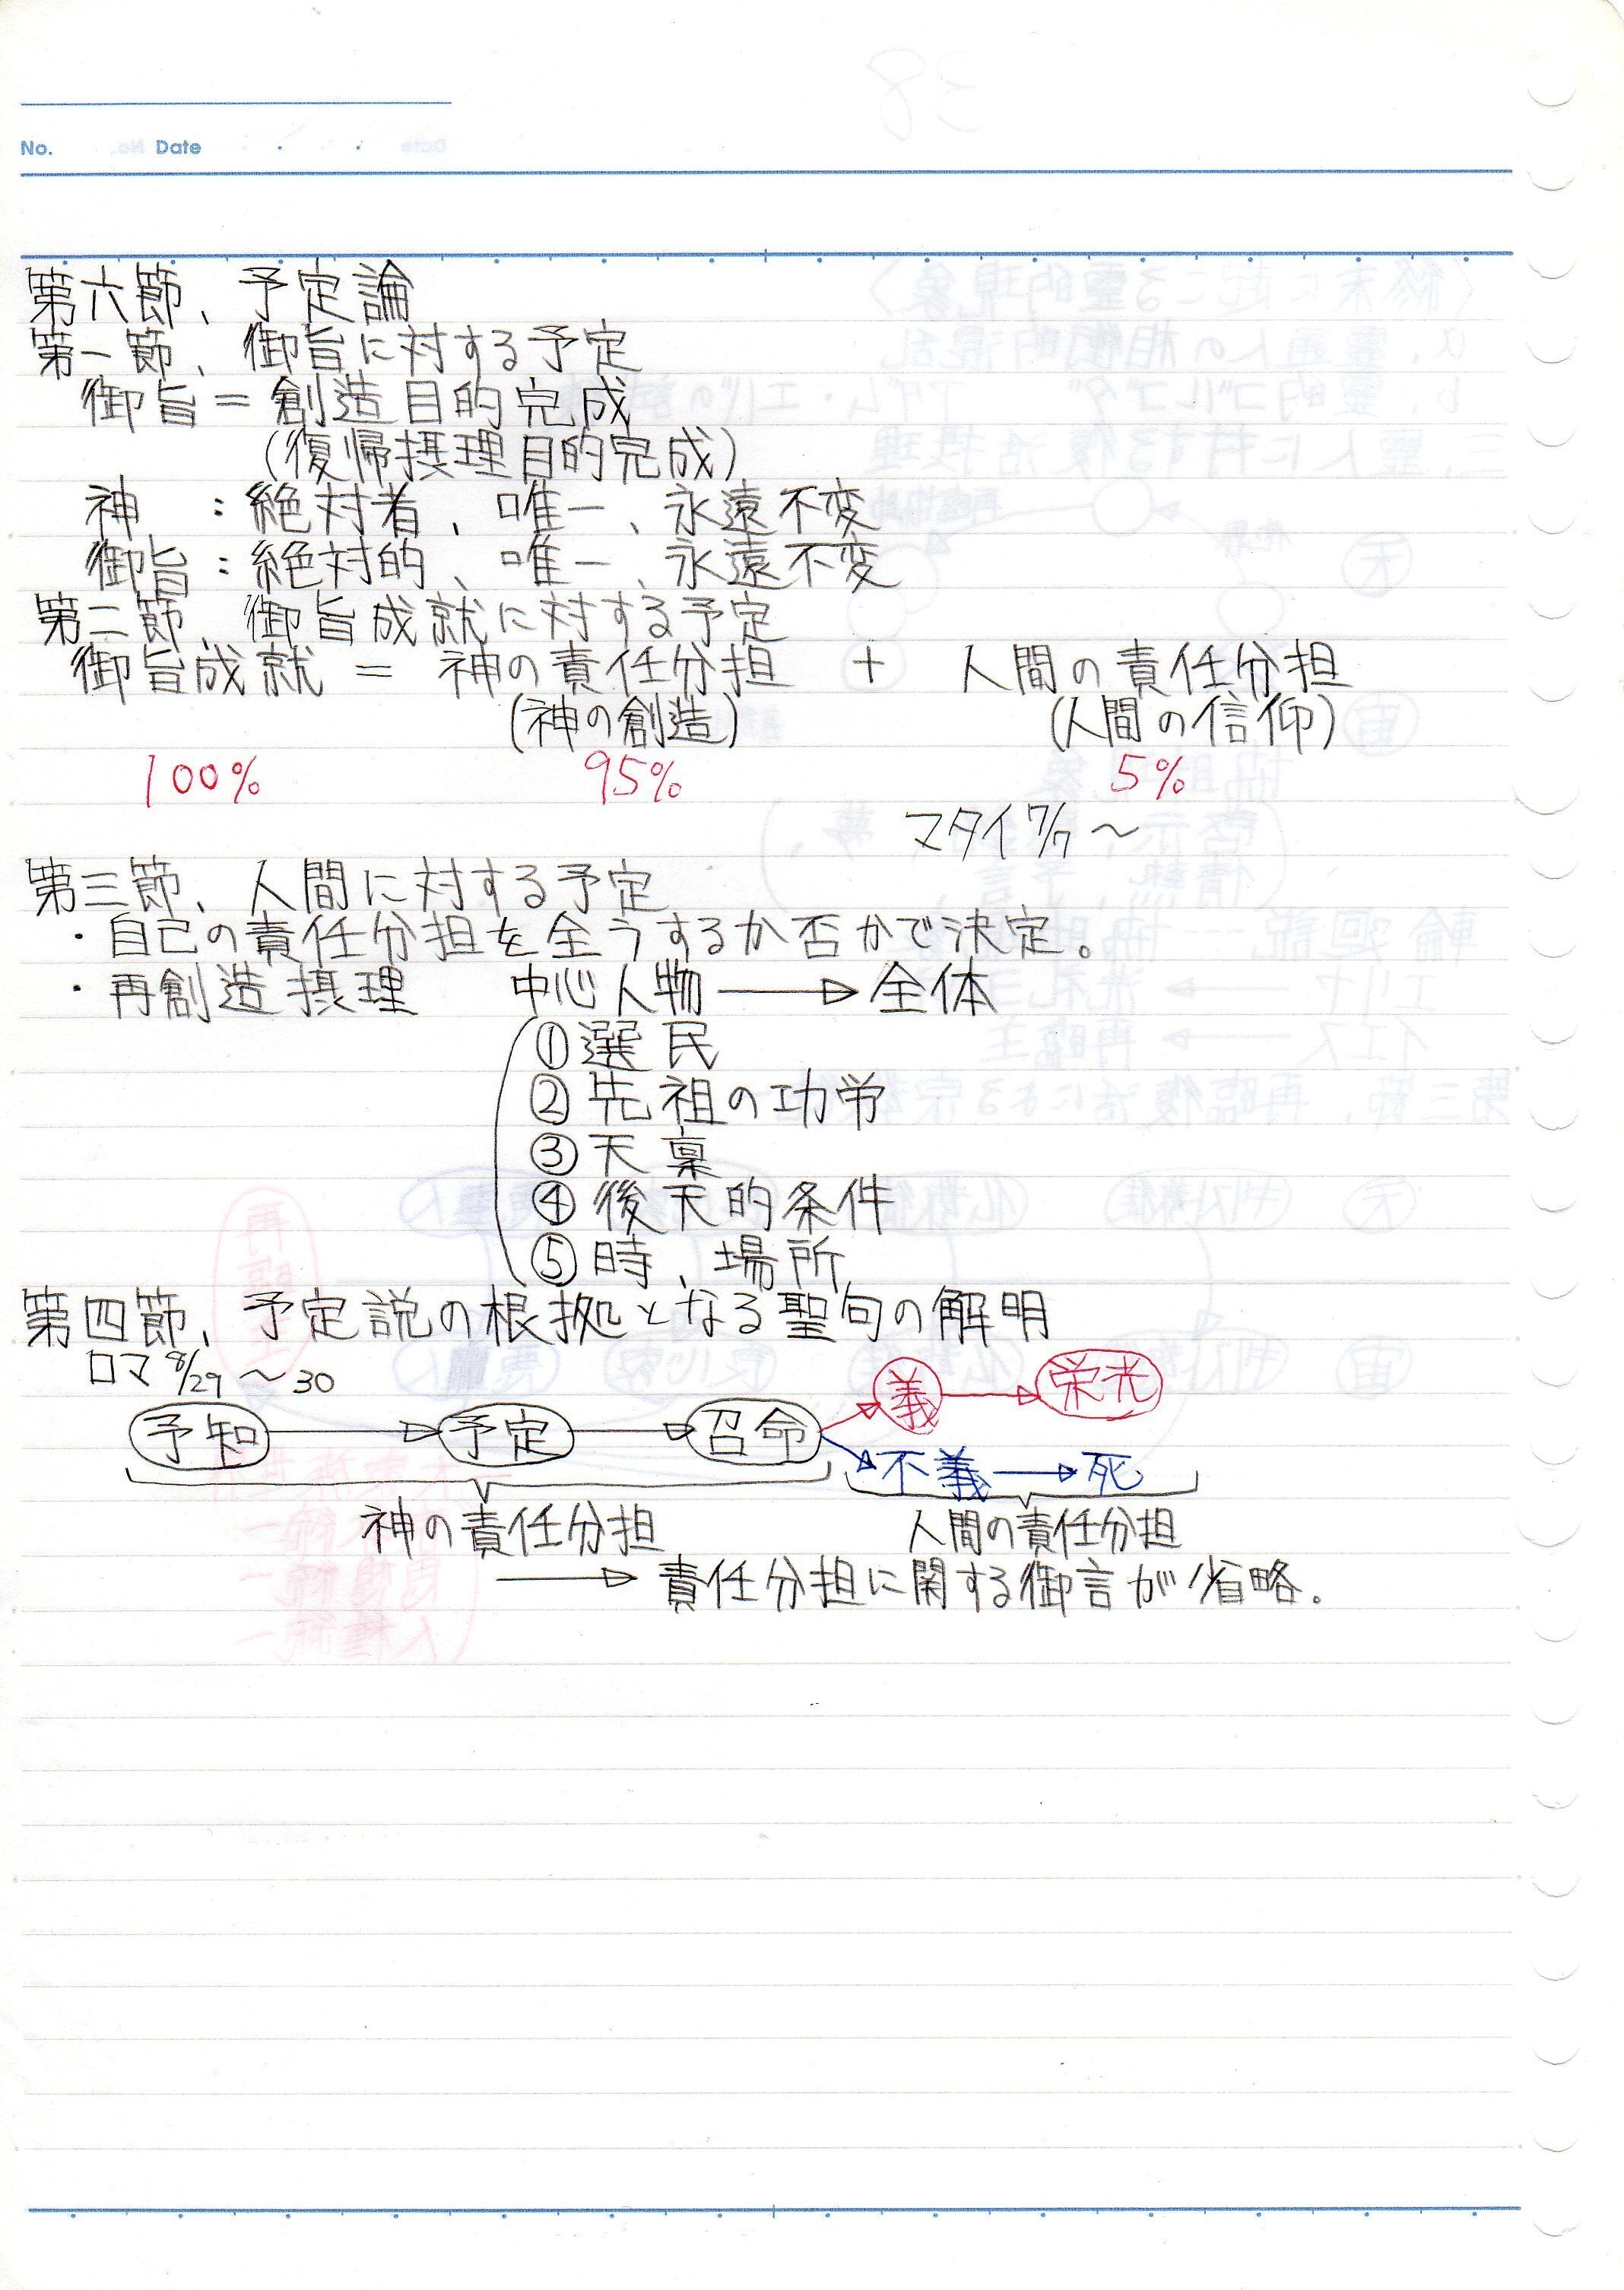 No. Date
第六節、予定論
第一節、御旨に対する予定
御旨 = 創造目的完成
(復帰摂理目的完成)
神 : 絶対者、唯一、永遠不変
御旨 : 絶対的、唯一、永遠不変
第二節、御旨成就に対する予定
御旨成就 = 神の責任分担 + 人間の責任分担
(神の創造) (人間の信仰)
100% 95% 5%
マタイ 7/7 〜
第三節、人間に対する予定
・自己の責任分担を全うするか否かで決定。
・再創造摂理 中心人物 → 全体
①選民
②先祖の功労
③天稟
④後天的条件
⑤時、場所
第四節、予定説の根拠となる聖句の解明
ロマ 8/29 〜 30
予知 → 予定 → 召命 → 義 → 栄光
不義 → 死
神の責任分担 人間の責任分担
→ 責任分担に関する御言が省略.